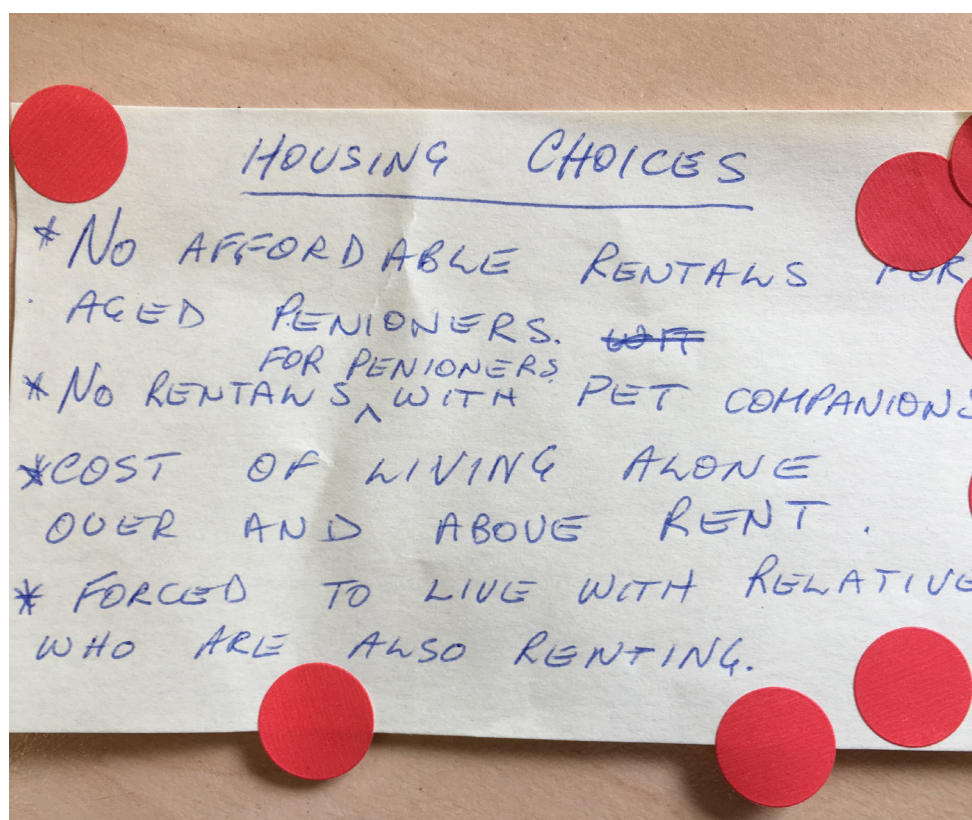 HOUSING CHOICES
* NO AFFORDABLE RENTALS FOR
AGED PENIONERS.
FOR PENIONERS
* NO RENTALS ^ WITH PET COMPANIONS
* COST OF LIVING ALONE
OVER AND ABOVE RENT.
* FORCED TO LIVE WITH RELATIVE
WHO ARE ALSO RENTING.